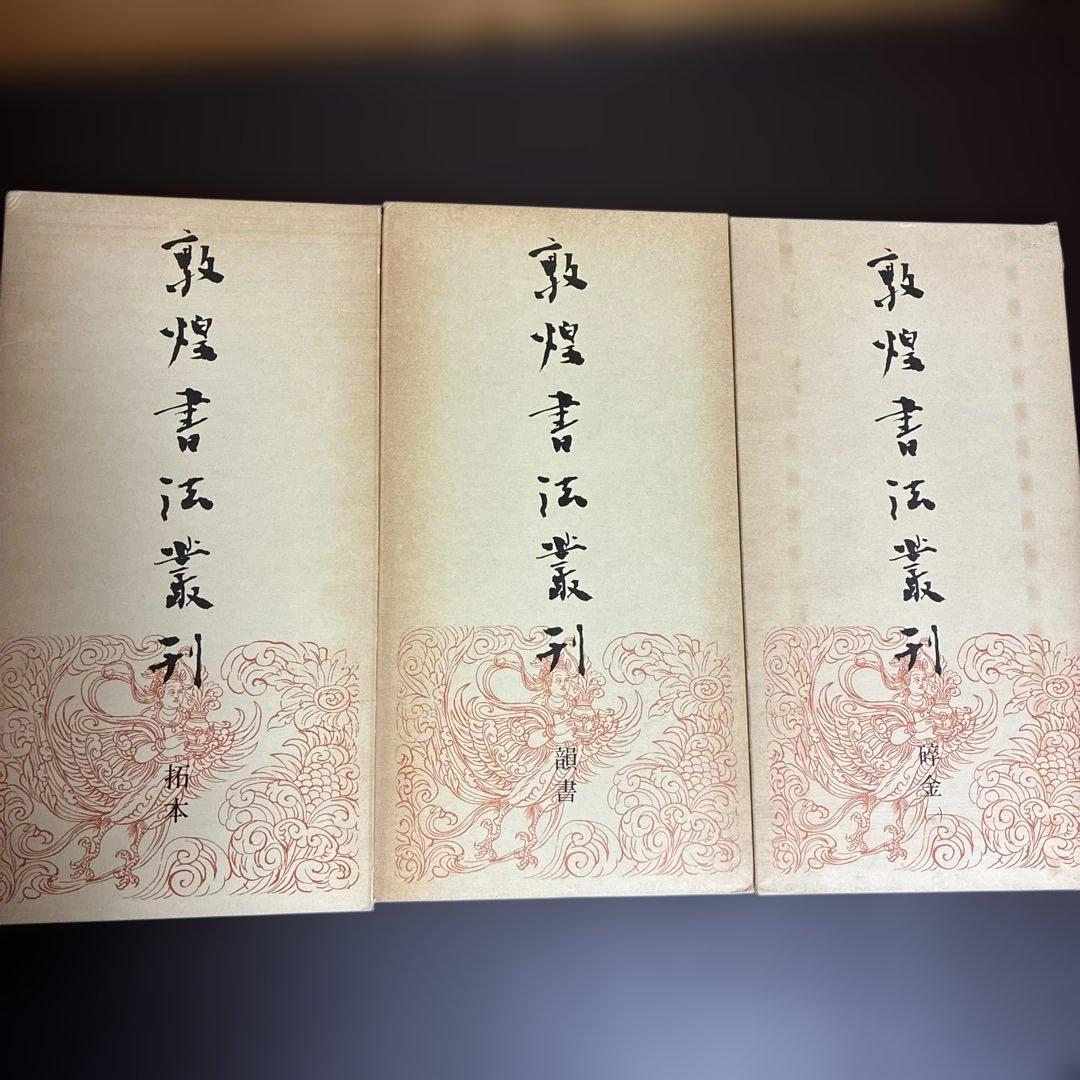 敦煌書法叢刊
拓本
敦煌書法叢刊
韻書
敦煌書法叢刊
碎金 一